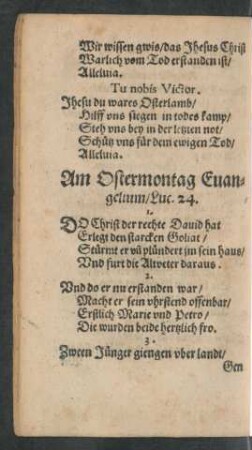 Wir wissen gwis/das Jhesus Christ
Warlich vom Tod erstanden ist/
Alleluia.
Tu nobis Victor.
Jhesu du wares Osterlamb/
Hilff vns siegen in todes kamp/
Steh vns bey in der letzten not/
Schütz vns für dem ewigen Tod/
Alleluia.
Am Ostermontag Euan-
gelium/Luc. 24.
1.
DO Christ der rechte Dauid hat
Erlegt den starcken Goliat/
Stürmt er vñ plündert jm sein haus/
Vnd furt die Altveter daraus.
2.
Vnd do er nu erstanden war/
Macht er sein vhrstend offenbar/
Erstlich Marie vnd Petro/
Die wurden beide hertzlich fro.
3.
Zween Jünger giengen vber landt/
Gen